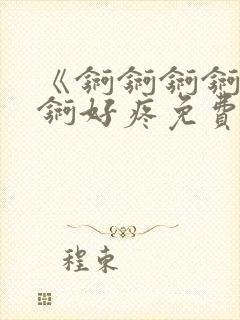 《锕锕锕锕
锕好疼免費
程束